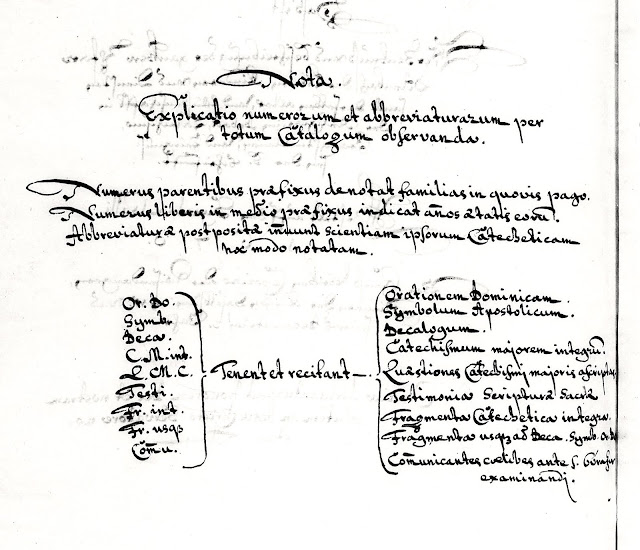 Nota.
Explicatio numerorum et abbreviaturarum per
totum Catalogum observanda.
Numerus parentibus præfixus denotat familias in quovis pago.
Numerus liberis in medio præfixus indicat años ætatis eorū.
Abbreviaturæ postpositæ innuunt scientiam ipsorum Catecheticam
hoc modo notatam.
Or. Do.
Symbr.
Deca.
C. M. int.
Q. M. C.
Testi.
Fr. int.
Fr. usq3
Com̄u.
Tenent et recitant
Orationem Dominicam.
Symbolum Apostolicum.
Decalogum.
Catechismum majorem integrū.
Quæstiones Catechismi majoris
Testimonia Scripturæ Sacræ
Fragmenta Catechetica integra.
Fragmenta usq3 ad Deca. Symb. Or.
Com̄unicantes cœlibes ante S.
examinandi.